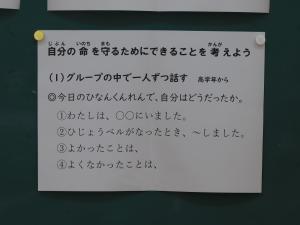 自分の命を守るためにできることを考えよう
(1)グループの中で一人ずつ話す 高学年から
◎今日のひなんくんれんで、自分はどうだったか。
①わたしは、○○にいました。
②ひじょうベルがなったとき、~しました。
③よかったことは、
④よくなかったことは、